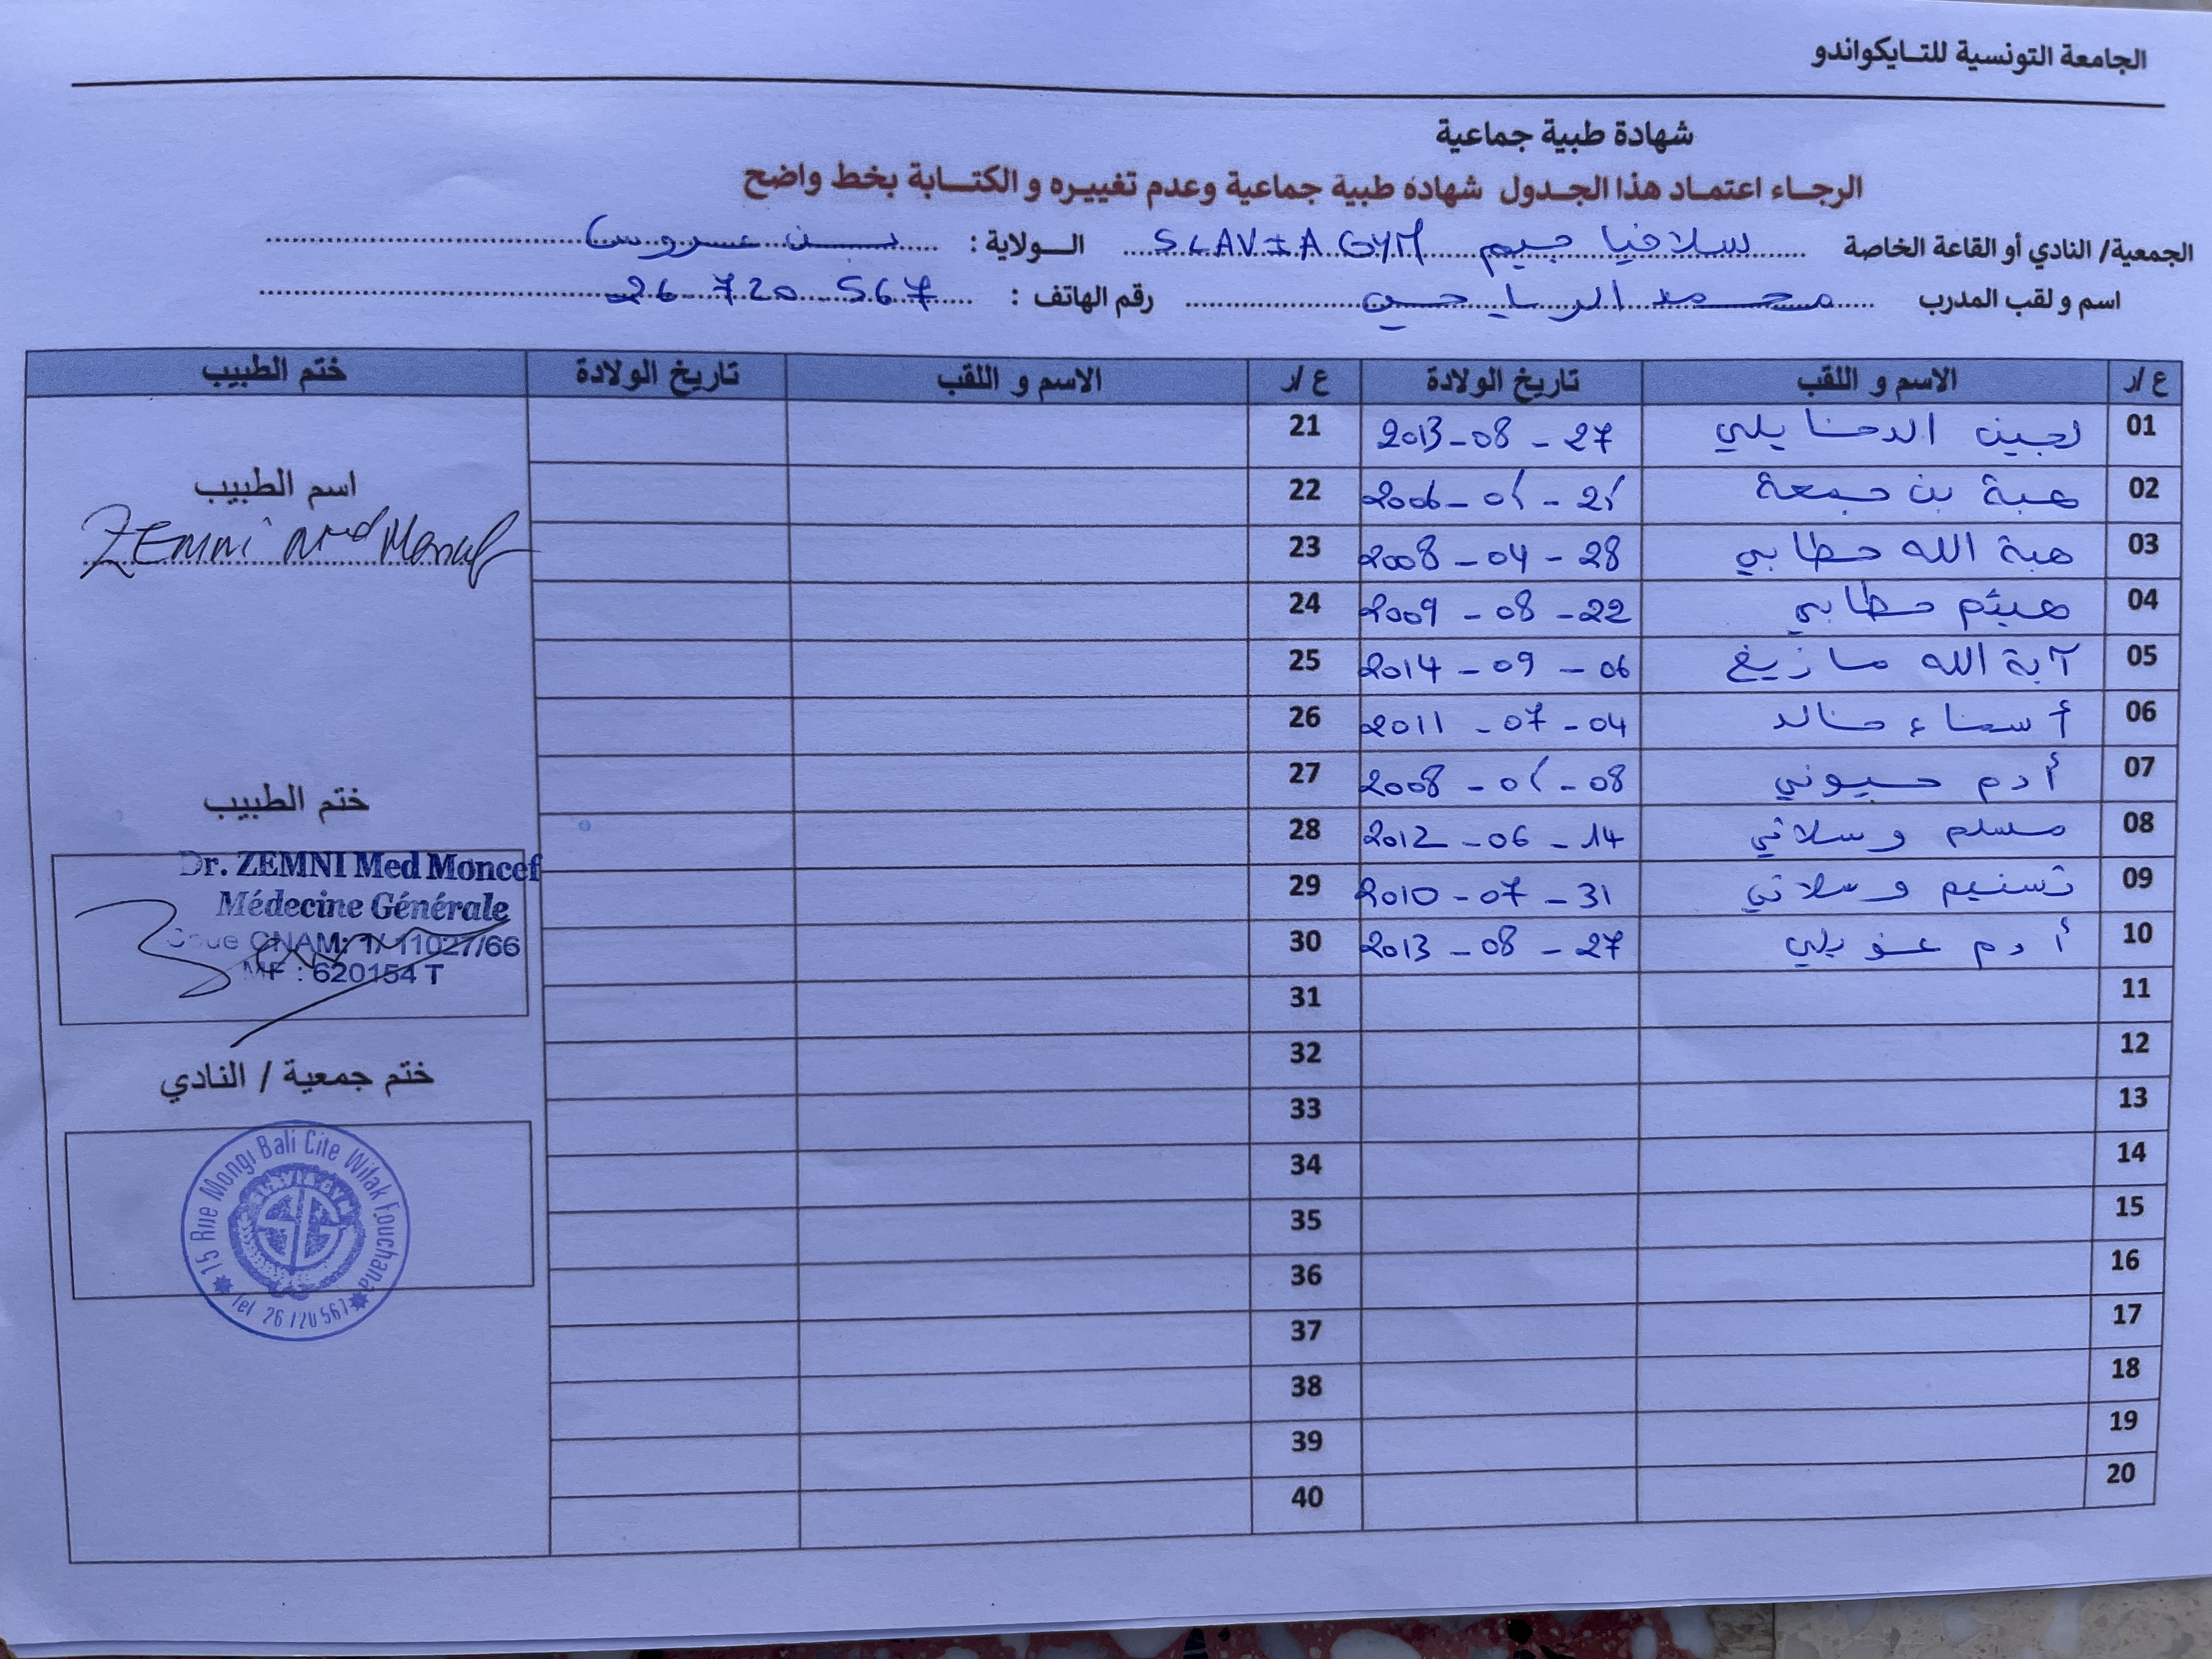 الجامعة التونسية للتايكواندو
شهادة طبية جماعية
الرجاء اعتماد هذا الجدول شهادة طبية جماعية وعدم تغييره و الكتابة بخط واضح
الجمعية/ النادي أو القاعة الخاصة سلافيا جيم SLAVIA GYM الولاية : بن عروس
اسم و لقب المدرب محمد الرياحي رقم الهاتف : 26 720 567
ع/ر الاسم و اللقب تاريخ الولادة ع/ر الاسم و اللقب تاريخ الولادة ختم الطبيب
01 لجين الدخايلي 2013-08-27 21
02 هبة بن جمعة 2006-01-21 22
03 هبة الله حطابي 2008-04-28 23
04 هيثم حطابي 2009-08-22 24
05 آية الله مازيغ 2014-09-06 25
06 أسماء خالد 2011-07-04 26
07 أدم 2008-01-08 27
08 مسلم وسلاتي 2012-06-14 28
09 تسنيم وسلاتي 2010-07-31 29
10 أدم 2013-08-27 30
11 31
12 32
13 33
14 34
15 35
16 36
17 37
18 38
19 39
20 40
اسم الطبيب
ZEMNI Med Moncef
ختم الطبيب
Dr. ZEMNI Med Moncef
Médecine Générale
Code CNAM: 1/ 11027/66
MF : 620154 T
ختم جمعية / النادي
15 Rue Mongi Bali Cite Wifak Fouchana
SLAVIA GYM
SG
Tel 26 720 567